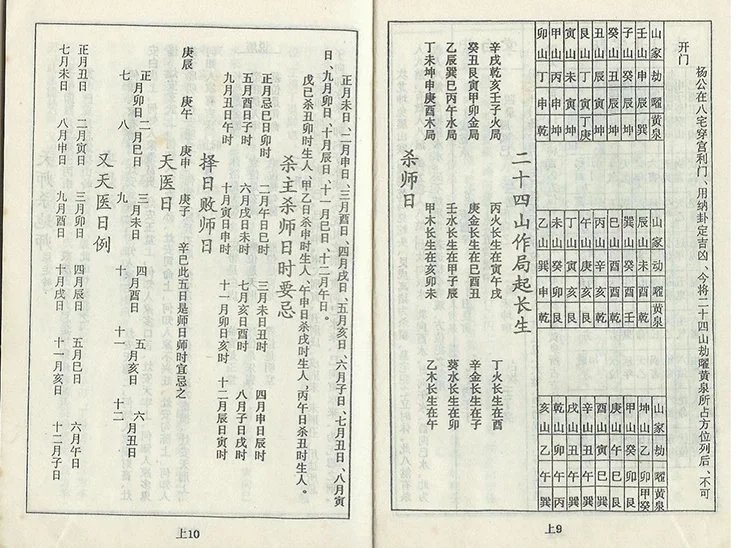 杨公在八宅穿宫利门、用纳卦定吉凶、今将二十四山劫曜黄泉所占方位列后、不可
开门
山家 劫 曜 黄泉
壬山 申 辰 巽
子山 癸 辰 坤
癸山 巳 辰 坤
丑山 辰 寅 坤
艮山 丁 寅 丁庚
寅山 未 寅 坤
甲山 丙 申 坤
卯山 丁 申 乾
山家 劫 曜 黄泉
辰山 未 酉 乾
巽山 癸 酉 壬
巳山 酉 酉 乾
丙山 辛 亥 乾
午山 庚 亥 艮
丁山 寅 亥 艮
未山 癸 亥 艮
乙山 巽 申 乾
山家 劫 曜 黄泉
坤山 乙 卯 甲癸
甲山 癸 卯 艮
庚山 午 巳 艮
酉山 寅 巳 巽
辛山 丑 午 巽
戌山 丑 午 巽
乾山 卯 午 巽
亥山 乙 午 巽
二十四山作局起长生
辛戌乾亥壬子火局 丙火长生在寅午戌 丁火长生在酉
癸丑艮寅甲卯金局 庚金长生在巳酉丑 辛金长生在子
乙辰巽巳丙午水局 壬水长生在甲子辰 癸水长生在卯
丁未坤申庚酉木局 甲木长生在亥卯未 乙木长生在午
杀师日
上9
正月未日、二月申日、三月酉日、四月戌日、五月亥日、六月子日、七月丑日、八月寅
日、九月卯日、十月辰日、十一月巳日、十二月午日。
戊己杀丑卯时生人，甲乙日杀申时生人，午申日杀戌时生人，丙午日杀丑时生人。
杀主杀师日时要忌
正月忌巳日卯时 二月午日巳时 三月未日丑时 四月申日辰时
五月丑日子时 六月戌日未时 七月亥日酉时 八月子日戌时
九月丑日午时 十月寅日申时 十一月卯日亥时 十二月辰日寅时
择日败师日
庚辰 庚午 庚申 庚子 辛巳此五日是师日师时宜忌之
天医日
正月卯日 二月巳日 三月未日 四月酉日 五月亥日 六月丑日
七 八 九 十 十一 十二
又天医日例
正月丑日 二月寅日 三月卯日 四月辰日 五月巳日 六月午日
七月未日 八月申日 九月酉日 十月戌日 十一月亥日 十二月子日
上10